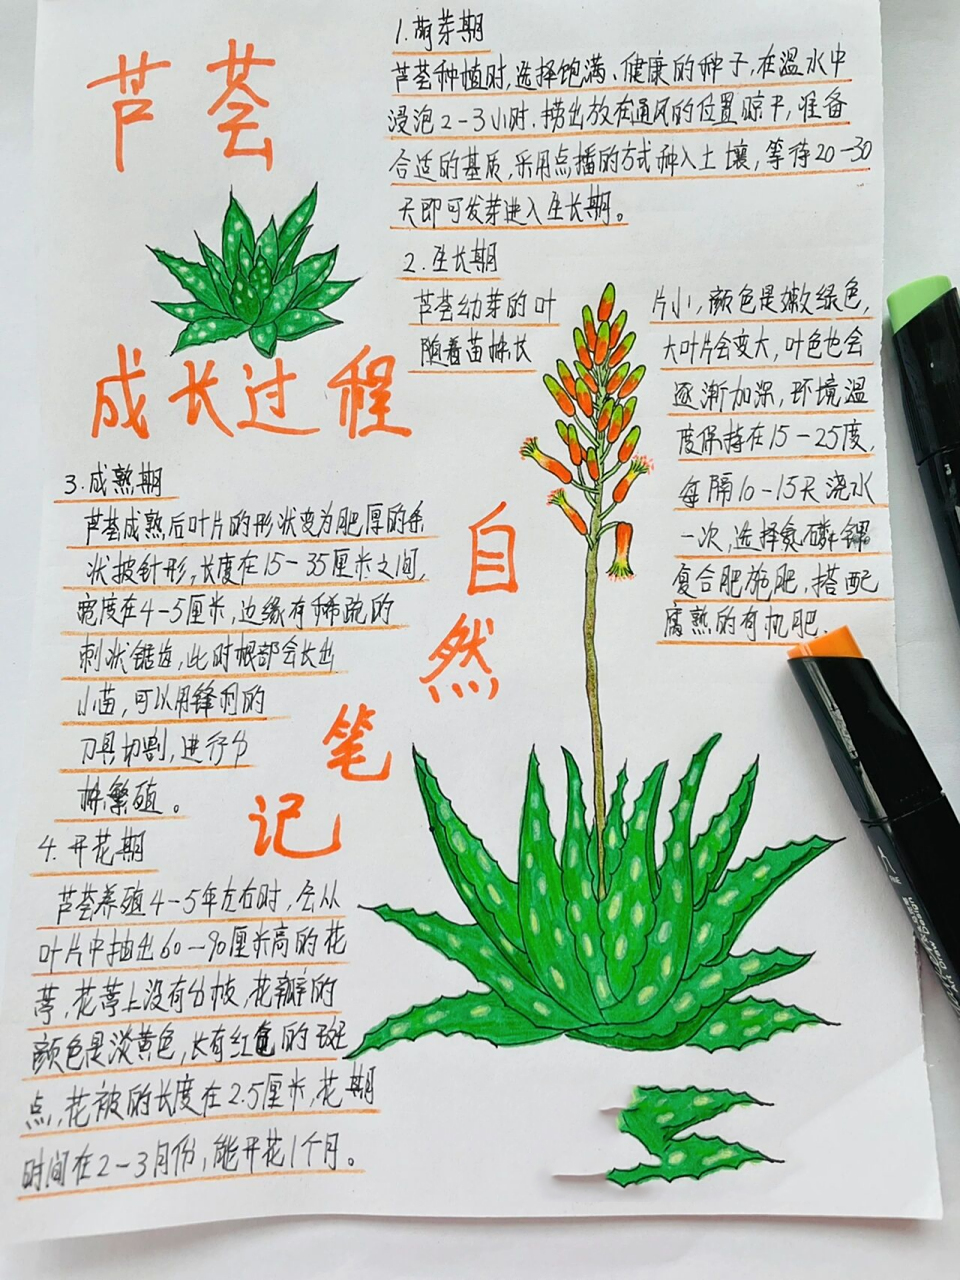 芦荟
成长过程
自然笔记
1.萌芽期
芦荟种植时,选择饱满、健康的种子,在温水中
浸泡2-3小时.捞出放在通风的位置晾干,准备
合适的基质,采用点播的方式种入土壤,等待20-30
天即可发芽进入生长期。
2.生长期
芦荟幼芽的叶
随着苗株长
片小,颜色是嫩绿色,
大叶片会变大,叶色也会
逐渐加深,环境温
度保持在15-25度,
每隔10-15天浇水
一次,选择氮磷钾
复合肥施肥,搭配
腐熟的有机肥.
3.成熟期
芦荟成熟后叶片的形状变为肥厚的条
状披针形,长度在15-35厘米之间,
宽度在4-5厘米,边缘有稀疏的
刺状锯齿,此时根部会长出
小苗,可以用锋利的
刀具切割,进行分
株繁殖。
4.开花期
芦荟养殖4-5年左右时,会从
叶片中抽出60-90厘米高的花
葶,花葶上没有分枝,花瓣的
颜色是淡黄色,长有红色的斑
点,花被的长度在2.5厘米,花期
时间在2-3月份,能开花1个月。